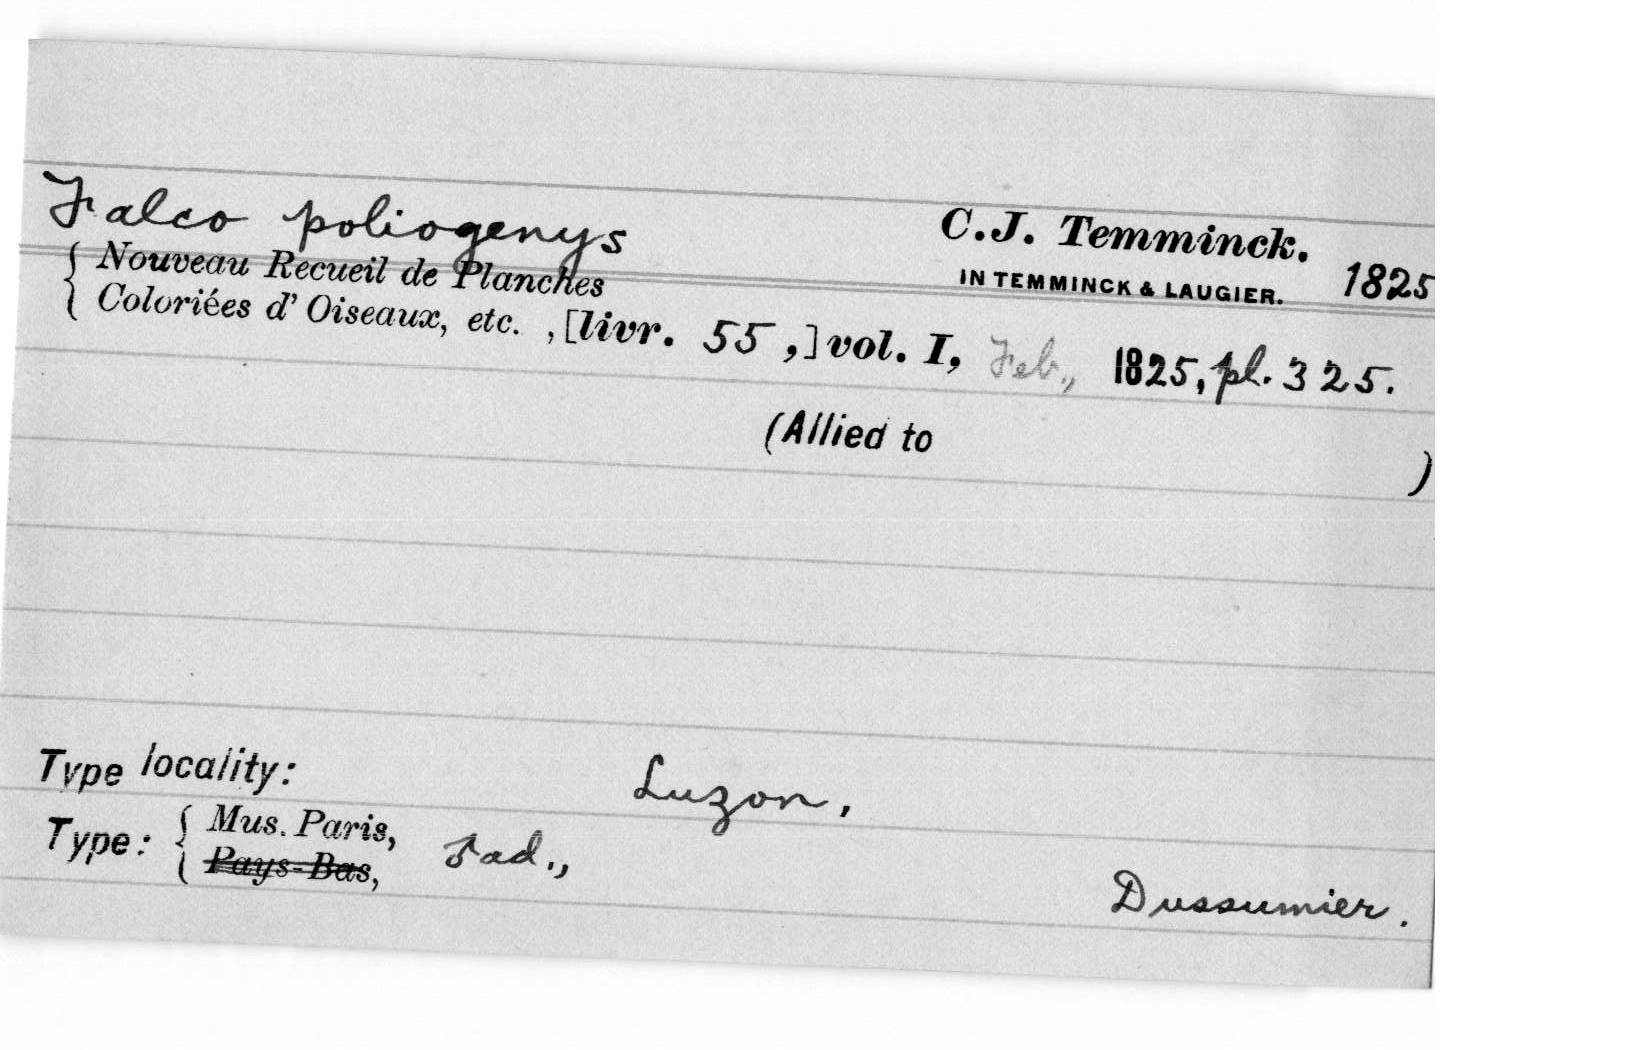 Falco poliogenys C.J. Temminck.
IN TEMMINCK & LAUGIER. 1825
Nouveau Recueil de Planches
Coloriées d' Oiseaux, etc. , [livr. 55,] vol. I, Feb., 1825, pl. 325.
(Allied to )
Type locality: Luzon,
Type: { Mus. Paris, ad.,
Pays-Bas,
Dussumier.